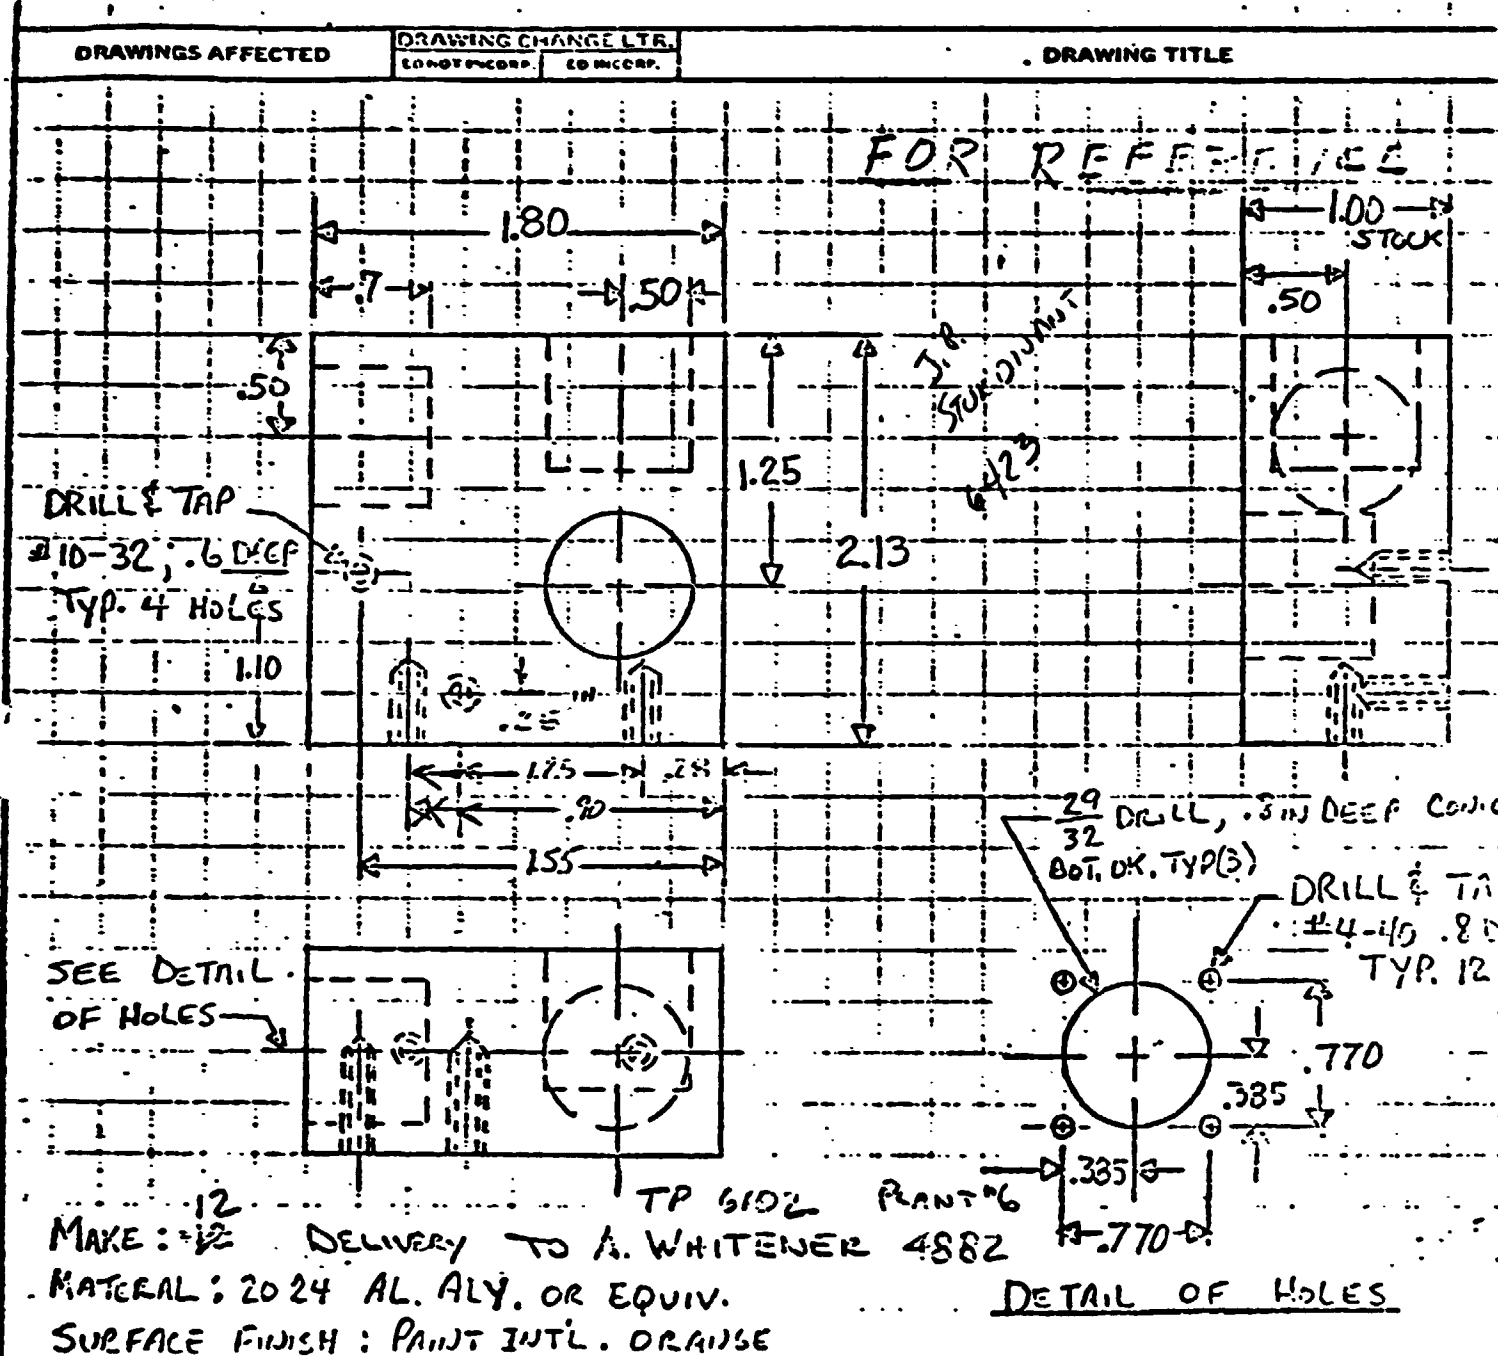 DRAWINGS AFFECTED
DRAWING CHANGE LTR.
EO NOT INCORP.
EO INCORP.
DRAWING TITLE
FOR
1.80
1.00
STOCK
.7
.50
.50
.50
J.R.
STURDIVANT
6423
1.25
2.13
DRILL & TAP
#10-32; .6 DEEP
TYP. 4 HOLES
1.10
IN
1.25
.28
.90
1.55
29
32
DRILL, .5 IN DEEP
BOT. OK. TYP(3)
DRILL &
#4-40 .8
TYP. 12
SEE DETAIL
OF HOLES
.770
.385
.385
.770
12
TP 6102 PLANT #6
MAKE:
DELIVERY TO A. WHITENER 4882
MATERAL: 2024 AL. ALY. OR EQUIV.
DETAIL OF HOLES
SURFACE FINISH: PAINT INT'L. ORANGE